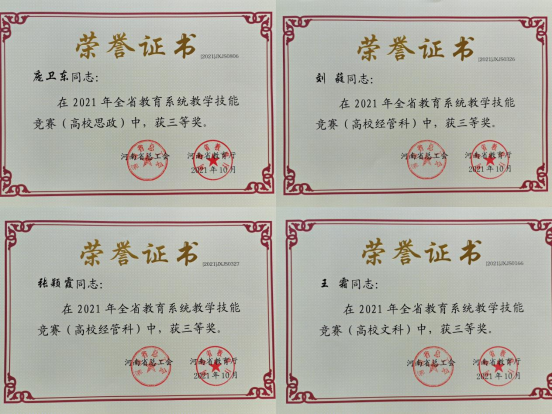 荣誉证书
[2021]JXJS0806
庞卫东同志：
在2021年全省教育系统教学技能
竞赛（高校思政）中，获三等奖。
河南省总工会 河南省教育厅
2021年10月
荣誉证书
[2021]JXJS0326
刘 薇同志：
在2021年全省教育系统教学技能
竞赛（高校经管科）中，获三等奖。
河南省总工会 河南省教育厅
2021年10月
荣誉证书
[2021]JXJS0327
张颖霞同志：
在2021年全省教育系统教学技能
竞赛（高校经管科）中，获三等奖。
河南省总工会 河南省教育厅
2021年10月
荣誉证书
王 霜同志：
在2021年全省教育系统教学技能
竞赛（高校文科）中，获三等奖。
河南省总工会 河南省教育厅
2021年10月